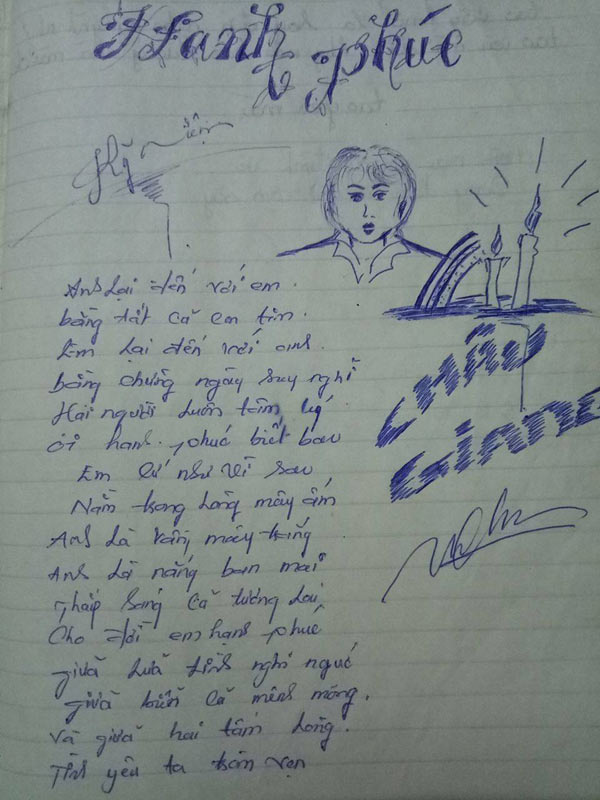 Hạnh phúc
Kỷ niệm
Anh lại đến với em.
bằng tất cả em tim
Em lại đến với anh.
bằng chứng ngày suy nghĩ
Hai người luôn tâm lý
Ôi hạnh phúc biết bao
Em cứ như vì sao
Nằm trong lòng mây ấm
Anh là vầng mây trắng
Anh là nắng ban mai
Thắp sáng cả tương lai
Cho đời em hạnh phúc
giữa lửa tình nghi ngút
giữa biển cả mênh mông.
và giữa hai tấm lòng.
Tình yêu ta trọn vẹn
CHÂU
Giang